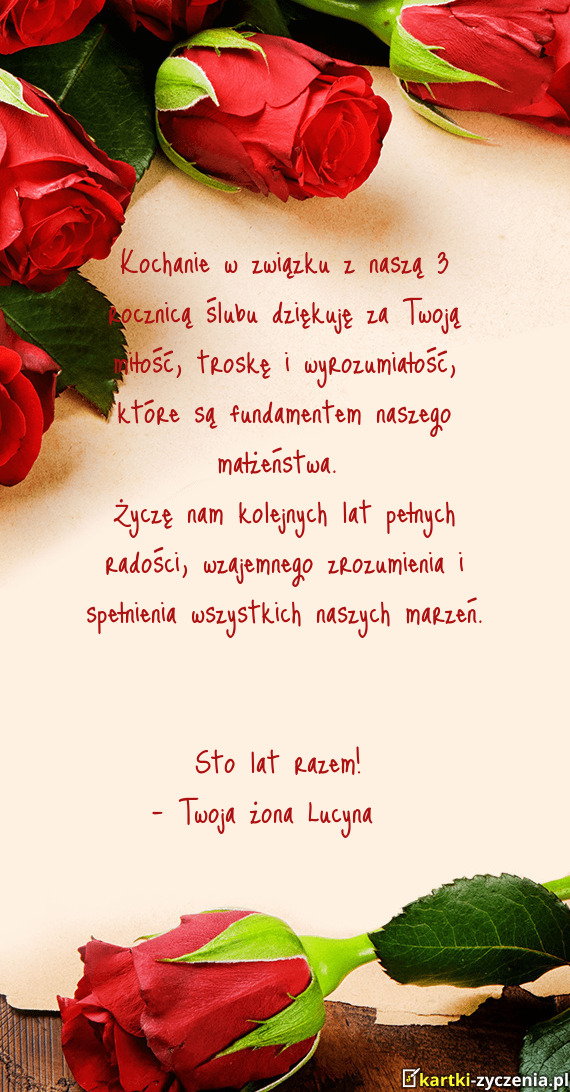 Kochanie w związku z naszą 3
rocznicą ślubu dziękuję za Twoją
miłość, troskę i wyrozumiałość,
które są fundamentem naszego
małżeństwa.
Życzę nam kolejnych lat pełnych
radości, wzajemnego zrozumienia i
spełnienia wszystkich naszych marzeń.
Sto lat razem!
- Twoja żona Lucyna
kartki-zyczenia.pl